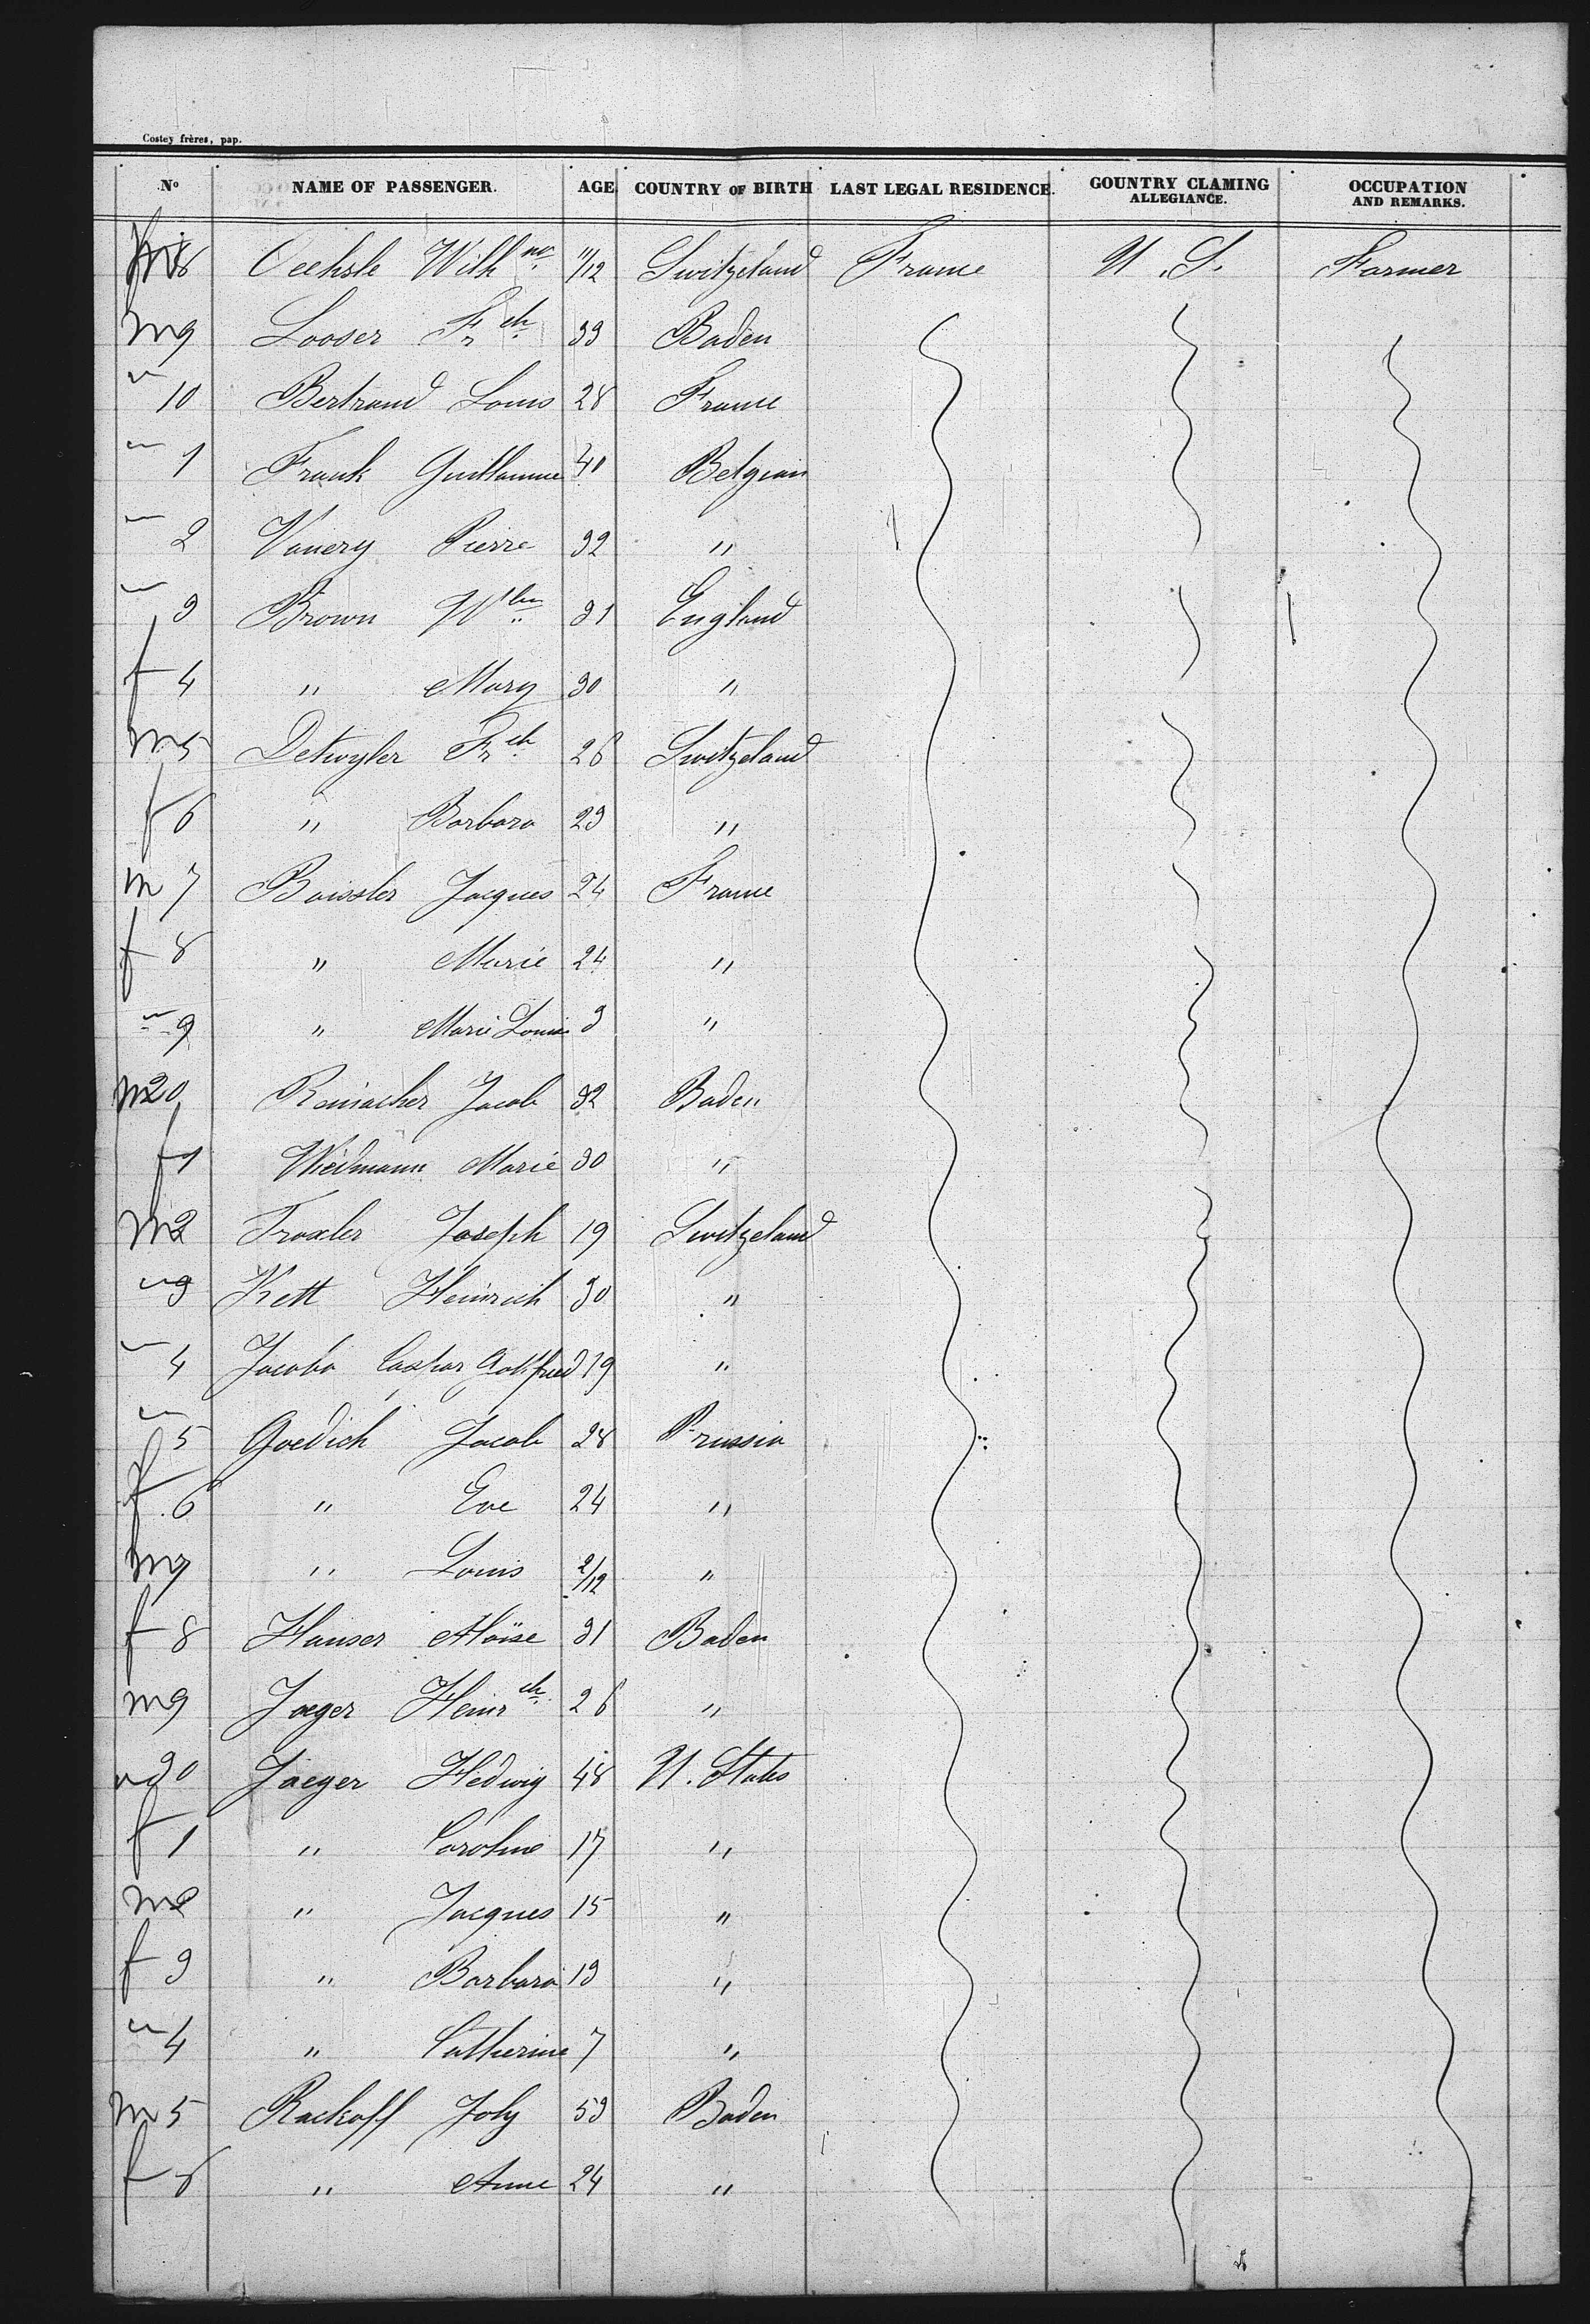 Costey frères, pap.
No NAME OF PASSENGER. AGE. COUNTRY OF BIRTH LAST LEGAL RESIDENCE. GOUNTRY CLAMING ALLEGIANCE. OCCUPATION AND REMARKS.
m 8 Oechsle Wilh 11/12 Switzeland France U. S. Farmer
m 9 Looser Frch 33 Baden
" 10 Bertrand Louis 28 France
" 1 Frank Guillaume 40 Belgian
" 2 Vanery Pierre 32 "
" 3 Brown Wlm 31 England
f 4 " Mary 30 "
m 5 Detwyler Frch 26 Switzeland
f 6 " Barbara 23 "
m 7 Baissler Jacques 24 France
f 8 " Marie 24 "
" 9 " Marie Louise 3 "
m 20 Reinacher Jacob 32 Baden
f 1 Wiedmann Marie 30 "
m 2 Troxler Joseph 19 Switzeland
" 3 Kett Heinrich 30 "
" 4 Jacobo Caspar Gottfried 19 "
" 5 Goedich Jacob 28 Prussia
f 6 " Eve 24 "
m 7 " Louis 2/12 "
f 8 Hauser Aloïse 31 Baden
m 9 Jaeger Heinrch 26 "
30 Jaeger Hedwig 48 U. States
f 1 " Caroline 17 "
m 2 " Jacques 15 "
f 3 " Barbara 13 "
" 4 " Catherine 7 "
m 5 Rackoff Joly 53 Baden
f 6 " Anne 24 "